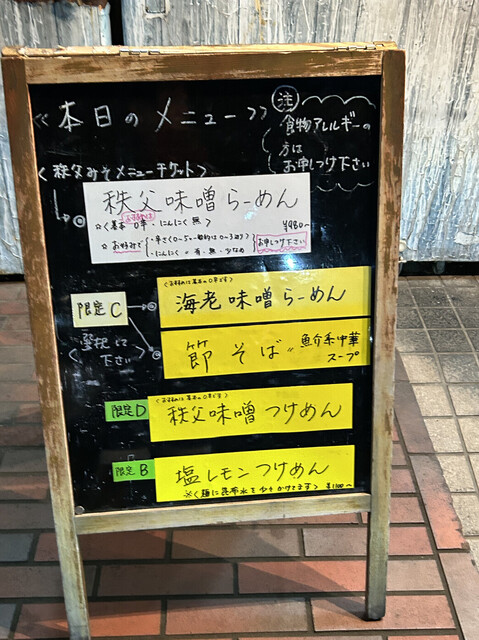 ≪本日のメニュー≫
注
食物アレルギーの
方は
お申しつけ下さい
<秩父みそメニューチケット>
秩父味噌らーめん
☆<基本 0辛・にんにく無>
¥980〜
☆お好みで
・辛さ0〜5
・にんにく 有・無・少なめ
お申しつけ下さい
限定C
選択して
下さい
海老味噌らーめん
節そば 魚介系中華
スープ
限定D
秩父味噌つけめん
限定B
塩レモンつけめん
※<麺に昆布水をかけてます> ¥1100〜